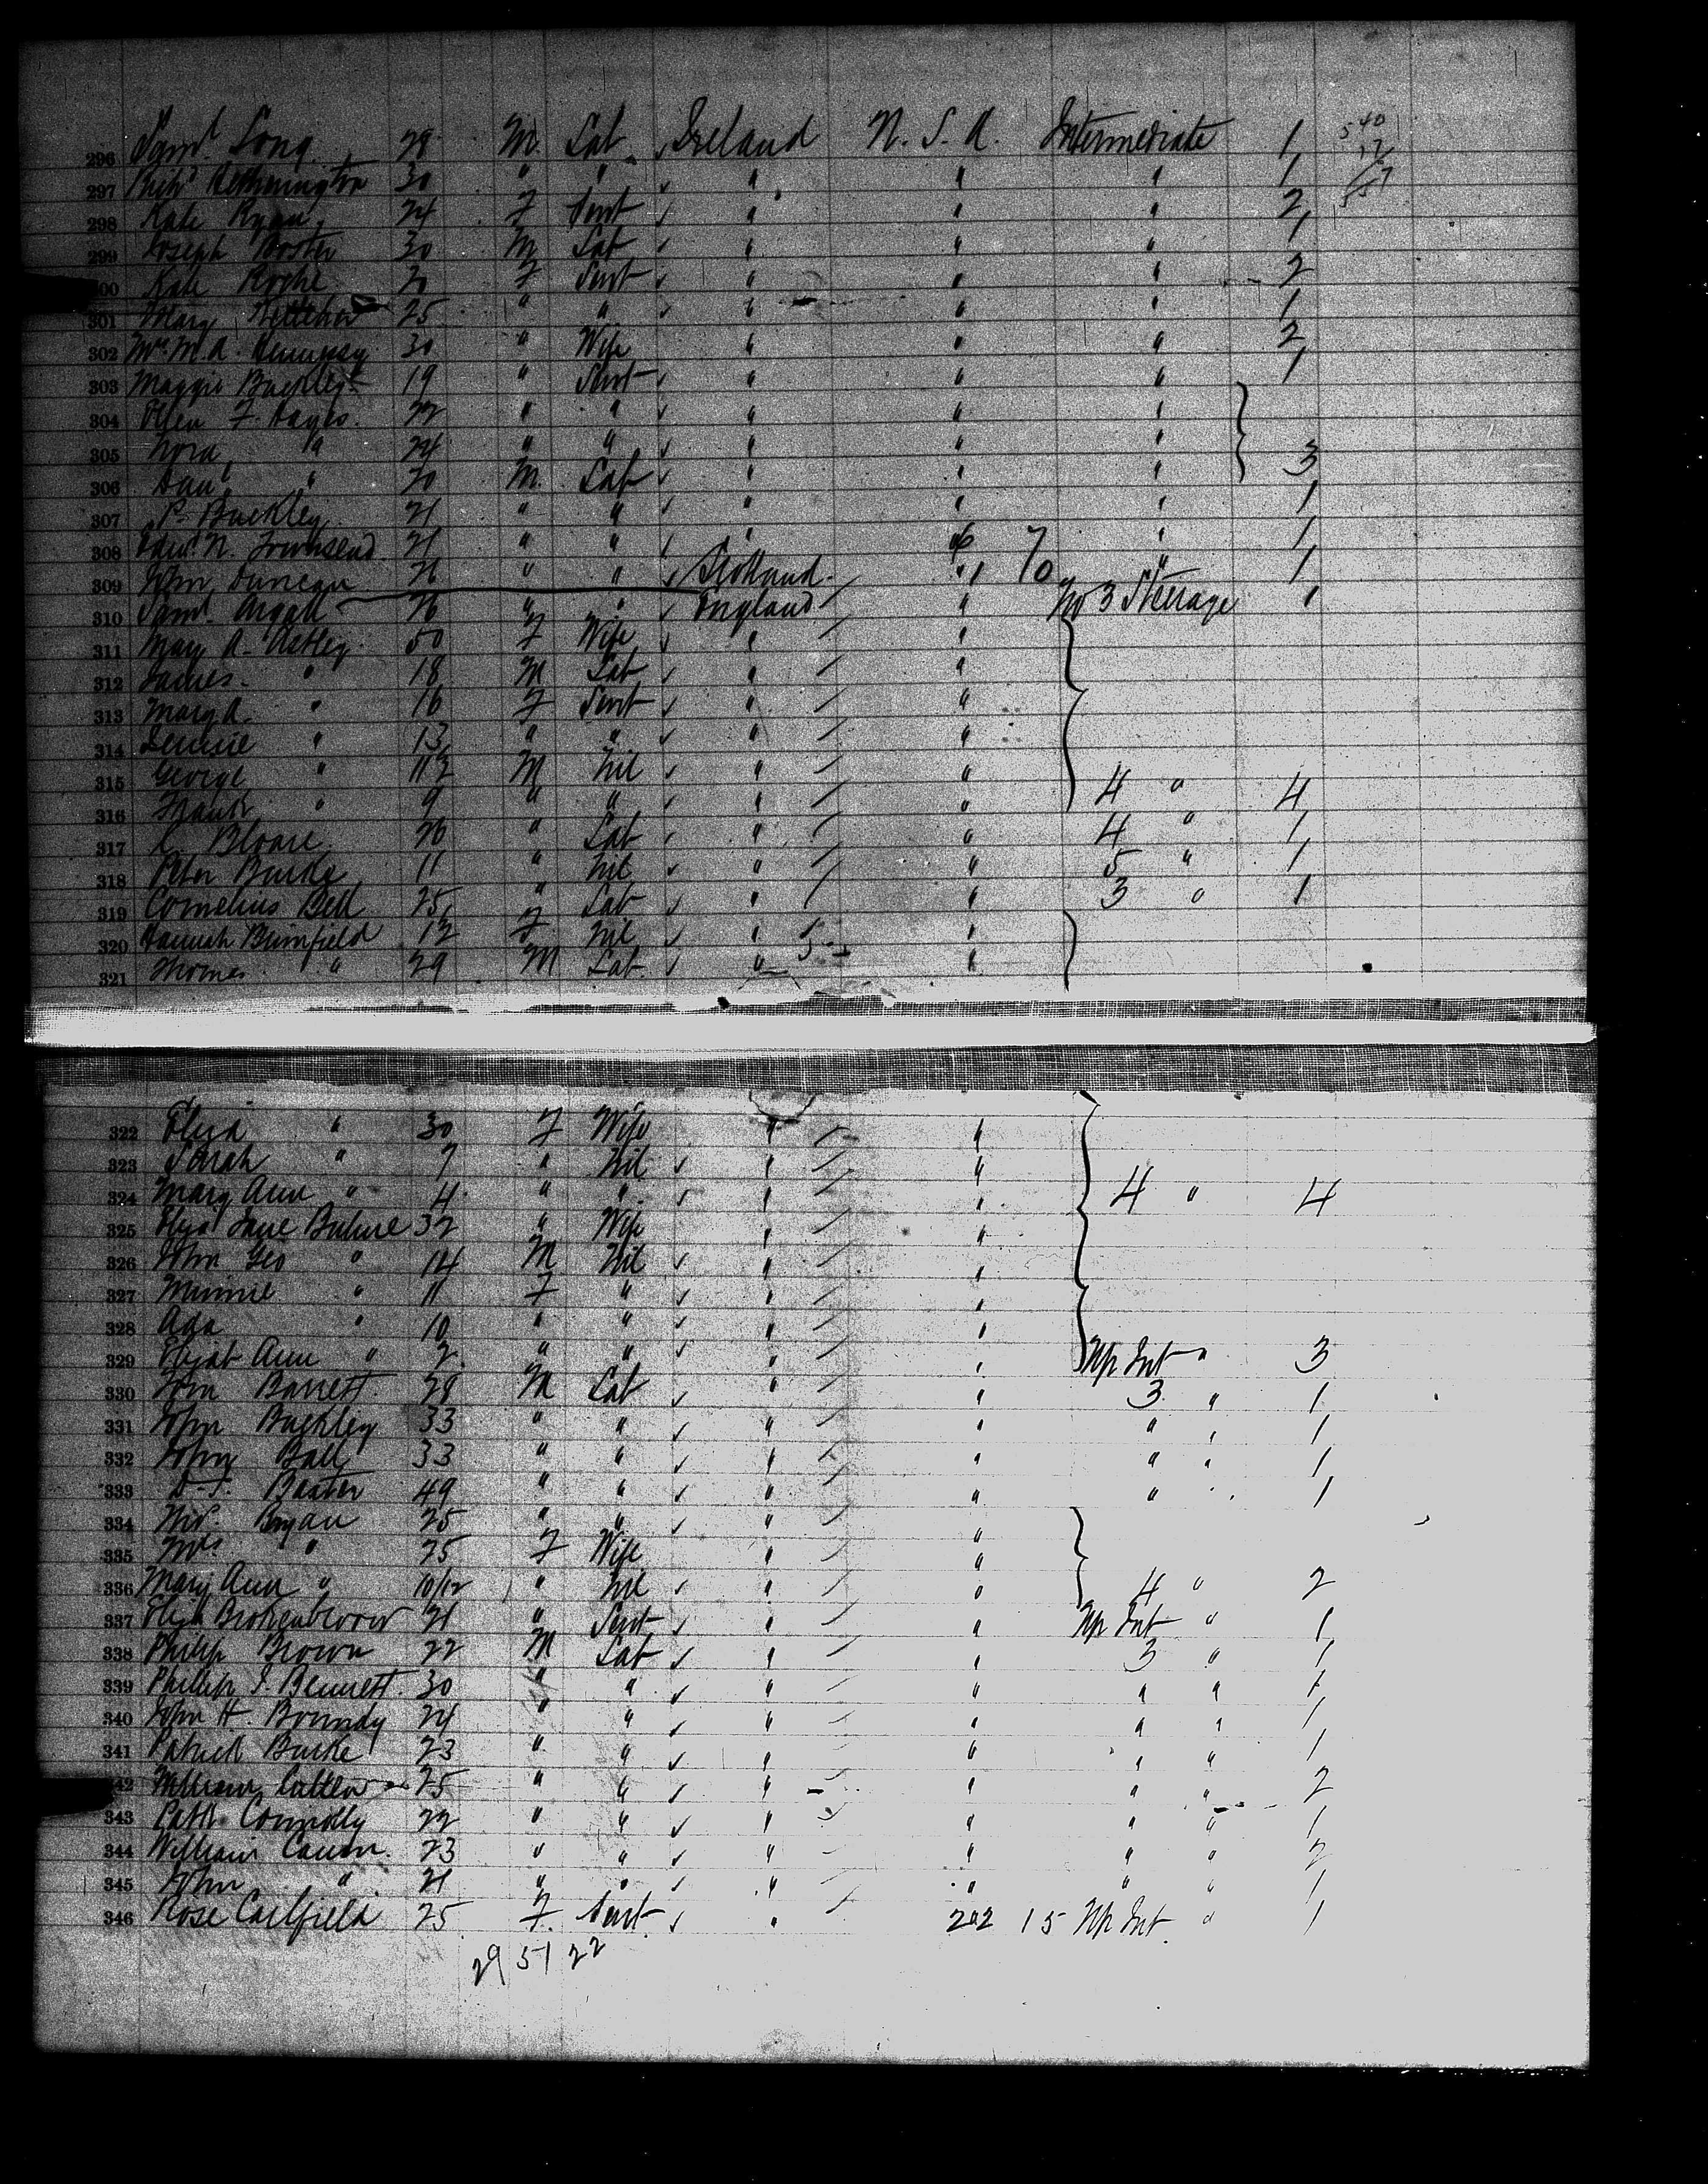 296 Saml. Long 28 M. Lab Ireland N. S. A. Intermediate 1
297 Hetherington 30 " " " " " 1
298 Kate Ryan 24 F Servt " " " 2
299 Joseph Foster 30 M Lab " " " 1
300 Kate Roche 20 F Servt " " " 2
301 Mary 25 " " " " " 1
302 Mrs. M.A. Dempsey 30 " Wife " " " 2
303 Maggie Buckley 19 " Servt " " " 1
304 Ellen F. Hayes 22 " " " " "
305 Nora " 24 " " " " "
306 Danl. " 20 M. Lab " " " 3
307 P. Buckley 21 " " " " " 1
308 Edwd. N. Townsend 21 " " " 70 " 1
309 John Duncan 26 " " Scotland " " 1
310 Saml. Argall 26 " " England " No 3 Steerage 1
311 Mary A. Astley 50 F Wife " "
312 James " 18 M Lab " "
313 Mary A. " 16 F Servt " "
314 Jennie " 13 " " " "
315 George " 11 M Nil " "
316 Frank " 9 " " " " 4 " 4
317 C. Bloare 26 " Lab " " 4 " 1
318 Peter Burke 11 " Nil " " 5 " 1
319 Cornelius Bell 25 " Lab " " 3 " 1
320 Hannah Brimfield 12 F Nil " "
321 Thomas " 29 M Lab " "
322 Eliza " 30 F Wife " "
323 Sarah " 7 " Nil " "
324 Mary Ann " 4 " " " " 4 " 4
325 Elizat Jane 32 " Wife " "
326 John Geo " 14 M Nil " "
327 Minnie " 11 F " " "
328 Ada " 10 " " " "
329 Elizat Ann " 2 " " " " Up Int " 3
330 Tom Barrett 28 M Lab " " 3 " 1
331 John Buckley 33 " " " " " " 1
332 John Ball 33 " " " " " " 1
333 D. S. Baxter 49 " " " " " " 1
334 Mr. Bryan 25 " " " "
335 Mrs " 25 F Wife " "
336 Mary Ann " 10/12 " Nil " " 4 " 2
337 Eliza 21 " Servt " " Up Int " 1
338 Philip Brown 22 M Lab " " 3 " 1
339 Philip J. Bennett 30 " " " " " " 1
340 John H. Boundy 24 " " " " " " 1
341 Patrick Burke 23 " " " " " " 1
342 William 25 " " " " " " 2
343 Patk. Connolly 22 " " " " " " 1
344 William Canon 23 " " " " " " 2
345 John " 21 " " " " " " 1
346 Rose Caulfield 25 F. Servt " 202 15 Up Int. " 1
29 51 22